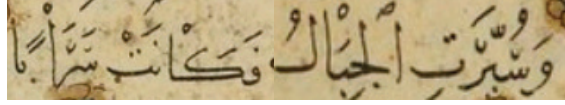 وَسُيِّرَتِ الْجِبَالُ فَكَانَتْ سَرَابًا